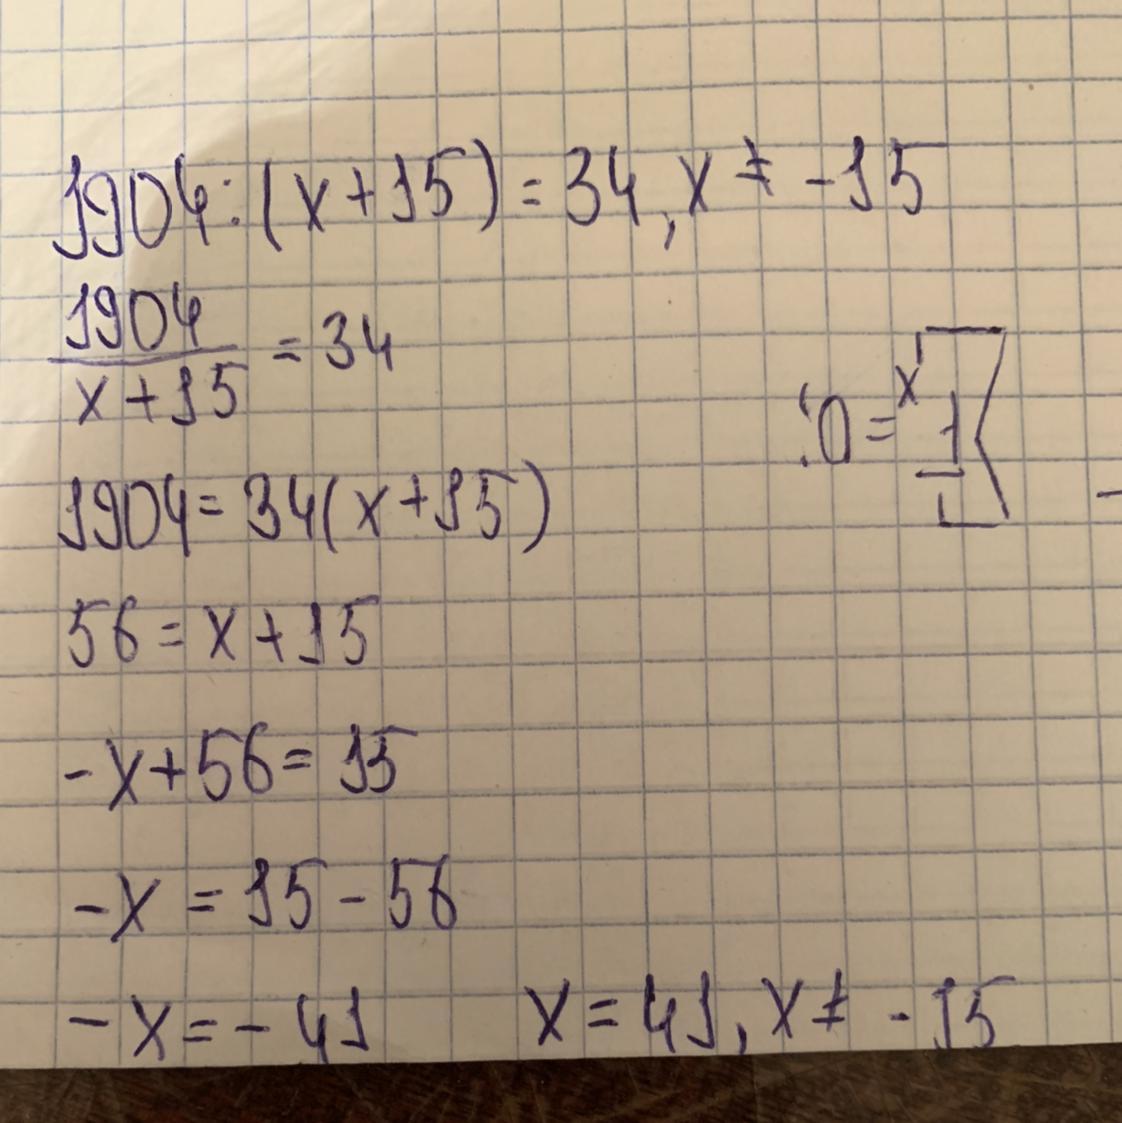 1904:(x+15)=34, x ≠ -15
1904/(x+15) = 34
1904=34(x+15)
56=x+15
-x+56=15
-x=15-56
-x=-41 x=41, x≠-15